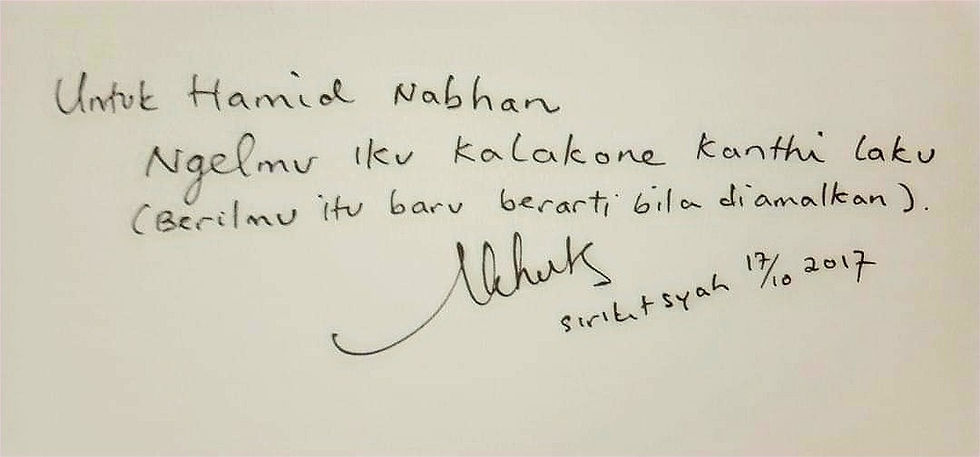 Untuk Hamid Nabhan
Ngelmu iku kalakone kanthi laku
(Berilmu itu baru berarti bila diamalkan).
sirikit syah 17/10 2017